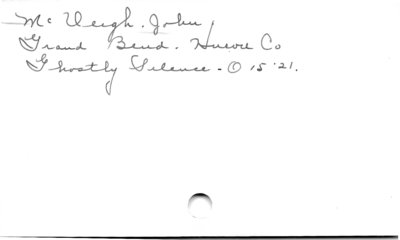 Mc Veigh. John
Grand Bend. Huron Co
Ghostly Silence - O 15 '21.